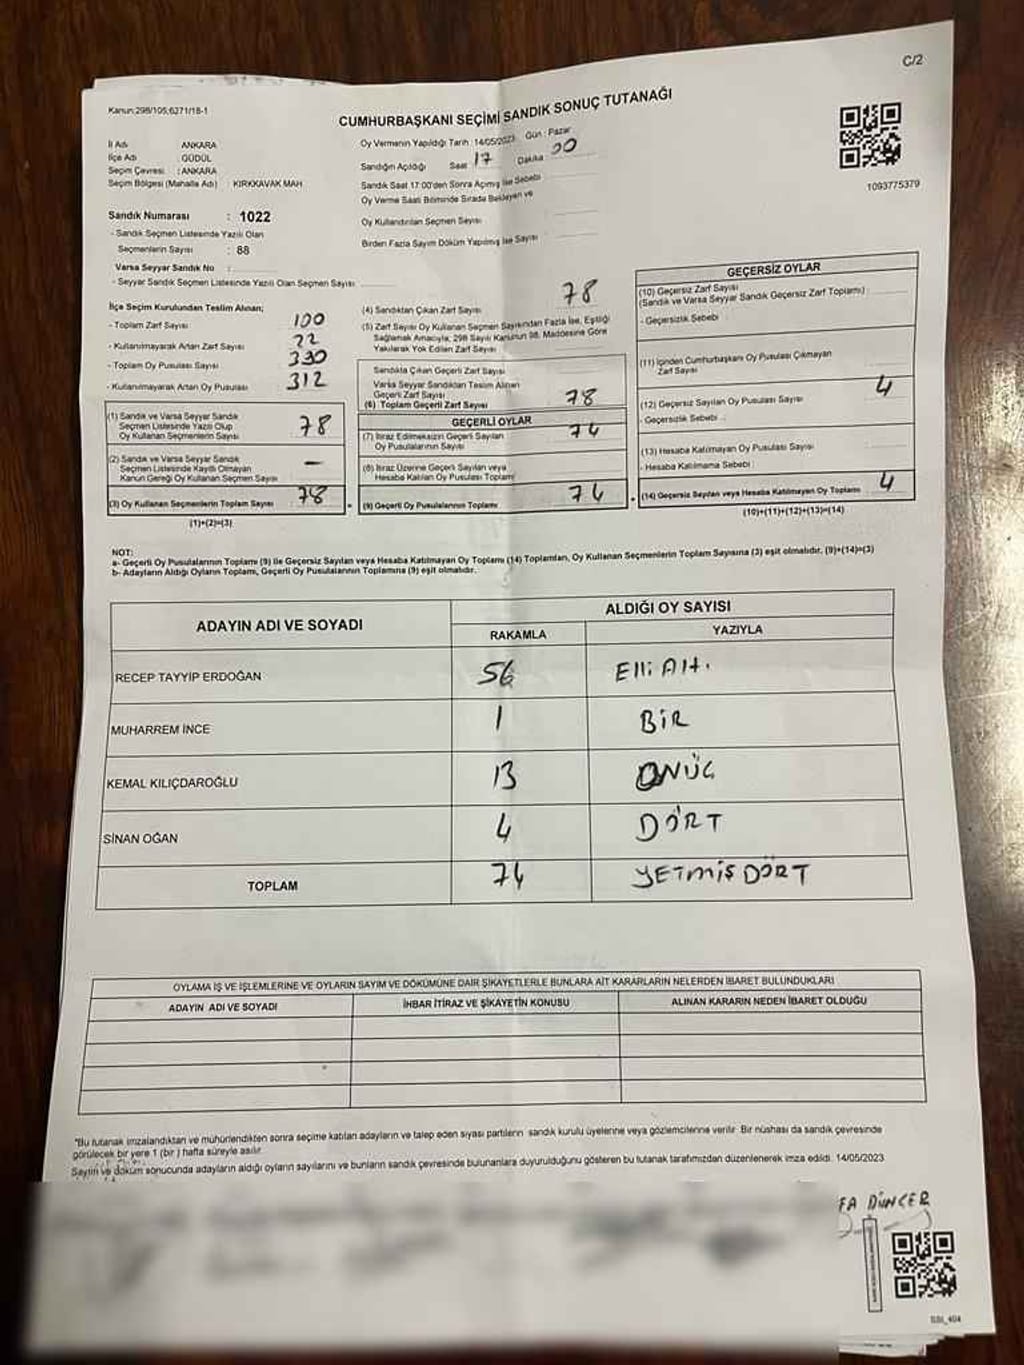 C/2
Kanun:298/105;6271/18-1
CUMHURBAŞKANI SEÇİMİ SANDIK SONUÇ TUTANAĞI
İl Adı ANKARA
İlçe Adı GÜDÜL
Seçim Çevresi : ANKARA
Seçim Bölgesi (Mahalle Adı) : KIRKKAVAK MAH
Sandık Numarası : 1022
- Sandık Seçmen Listesinde Yazılı Olan
Seçmenlerin Sayısı : 88
Varsa Seyyar Sandık No :
- Seyyar Sandık Seçmen Listesinde Yazılı Olan Seçmen Sayısı
Oy Vermenin Yapıldığı Tarih : 14/05/2023 Gün : Pazar
Sandığın Açıldığı Saat 17 Dakika 00
Sandık Saat 17:00'den Sonra Açılmış İse Sebebi
Oy Verme Saati Bitiminde Sırada Bekleyen ve
Oy Kullandırılan Seçmen Sayısı
Birden Fazla Sayım Döküm Yapılmış İse Sayısı
1093775379
İlçe Seçim Kurulundan Teslim Alınan;
- Toplam Zarf Sayısı 100
- Kullanılmayarak Artan Zarf Sayısı 22
- Toplam Oy Pusulası Sayısı 330
- Kullanılmayarak Artan Oy Pusulası 312
(1) Sandık ve Varsa Seyyar Sandık
Seçmen Listesinde Yazılı Olup
Oy Kullanan Seçmenlerin Sayısı 78
(2) Sandık ve Varsa Seyyar Sandık
Seçmen Listesinde Kayıtlı Olmayan
Kanun Gereği Oy Kullanan Seçmen Sayısı –
(3) Oy Kullanan Seçmenlerin Toplam Sayısı 78
(1)+(2)=(3)
(4) Sandıktan Çıkan Zarf Sayısı 78
(5) Zarf Sayısı Oy Kullanan Seçmen Sayısından Fazla İse, Eşitliği
Sağlamak Amacıyla; 298 Sayılı Kanunun 98. Maddesine Göre
Yakılarak Yok Edilen Zarf Sayısı
Sandıkta Çıkan Geçerli Zarf Sayısı
Varsa Seyyar Sandıktan Teslim Alınan
Geçerli Zarf Sayısı
(6) Toplam Geçerli Zarf Sayısı 78
GEÇERLİ OYLAR
(7) İtiraz Edilmeksizin Geçerli Sayılan
Oy Pusulalarının Sayısı 74
(8) İtiraz Üzerine Geçerli Sayılan veya
Hesaba Katılan Oy Pusulası Toplamı
(9) Geçerli Oy Pusulalarının Toplamı 74
GEÇERSİZ OYLAR
(10) Geçersiz Zarf Sayısı
(Sandık ve Varsa Seyyar Sandık Geçersiz Zarf Toplamı)
- Geçersizlik Sebebi
(11) İçinden Cumhurbaşkanı Oy Pusulası Çıkmayan
Zarf Sayısı
(12) Geçersiz Sayılan Oy Pusulası Sayısı 4
- Geçersizlik Sebebi :
(13) Hesaba Katılmayan Oy Pusulası Sayısı
- Hesaba Katılmama Sebebi :
(14) Geçersiz Sayılan veya Hesaba Katılmayan Oy Toplamı 4
(10)+(11)+(12)+(13)=(14)
NOT:
a- Geçerli Oy Pusulalarının Toplamı (9) ile Geçersiz Sayılan veya Hesaba Katılmayan Oy Toplamı (14) Toplamları, Oy Kullanan Seçmenlerin Toplam Sayısına (3) eşit olmalıdır. (9)+(14)=(3)
b- Adayların Aldığı Oyların Toplamı, Geçerli Oy Pusulalarının Toplamına (9) eşit olmalıdır.
ADAYIN ADI VE SOYADI ALDIĞI OY SAYISI
RAKAMLA YAZIYLA
RECEP TAYYİP ERDOĞAN 56 Elli Altı
MUHARREM İNCE 1 BİR
KEMAL KILIÇDAROĞLU 13 ONÜÇ
SİNAN OĞAN 4 DÖRT
TOPLAM 74 YETMİŞ DÖRT
OYLAMA İŞ VE İŞLEMLERİNE VE OYLARIN SAYIM VE DÖKÜMÜNE DAİR ŞİKAYETLERLE BUNLARA AİT KARARLARIN NELERDEN İBARET BULUNDUKLARI
ADAYIN ADI VE SOYADI İHBAR İTİRAZ VE ŞİKAYETİN KONUSU ALINAN KARARIN NEDEN İBARET OLDUĞU
"Bu tutanak imzalandıktan ve mühürlendikten sonra seçime katılan adayların ve talep eden siyasi partilerin sandık kurulu üyelerine veya gözlemcilerine verilir. Bir nüshası da sandık çevresinde
görülecek bir yere 1 (bir ) hafta süreyle asılır.
Sayım ve döküm sonucunda adayların aldığı oyların sayılarını ve bunların sandık çevresinde bulunanlara duyurulduğunu gösteren bu tutanak tarafımızdan düzenlenerek imza edildi. 14/05/2023
FA DİNÇER